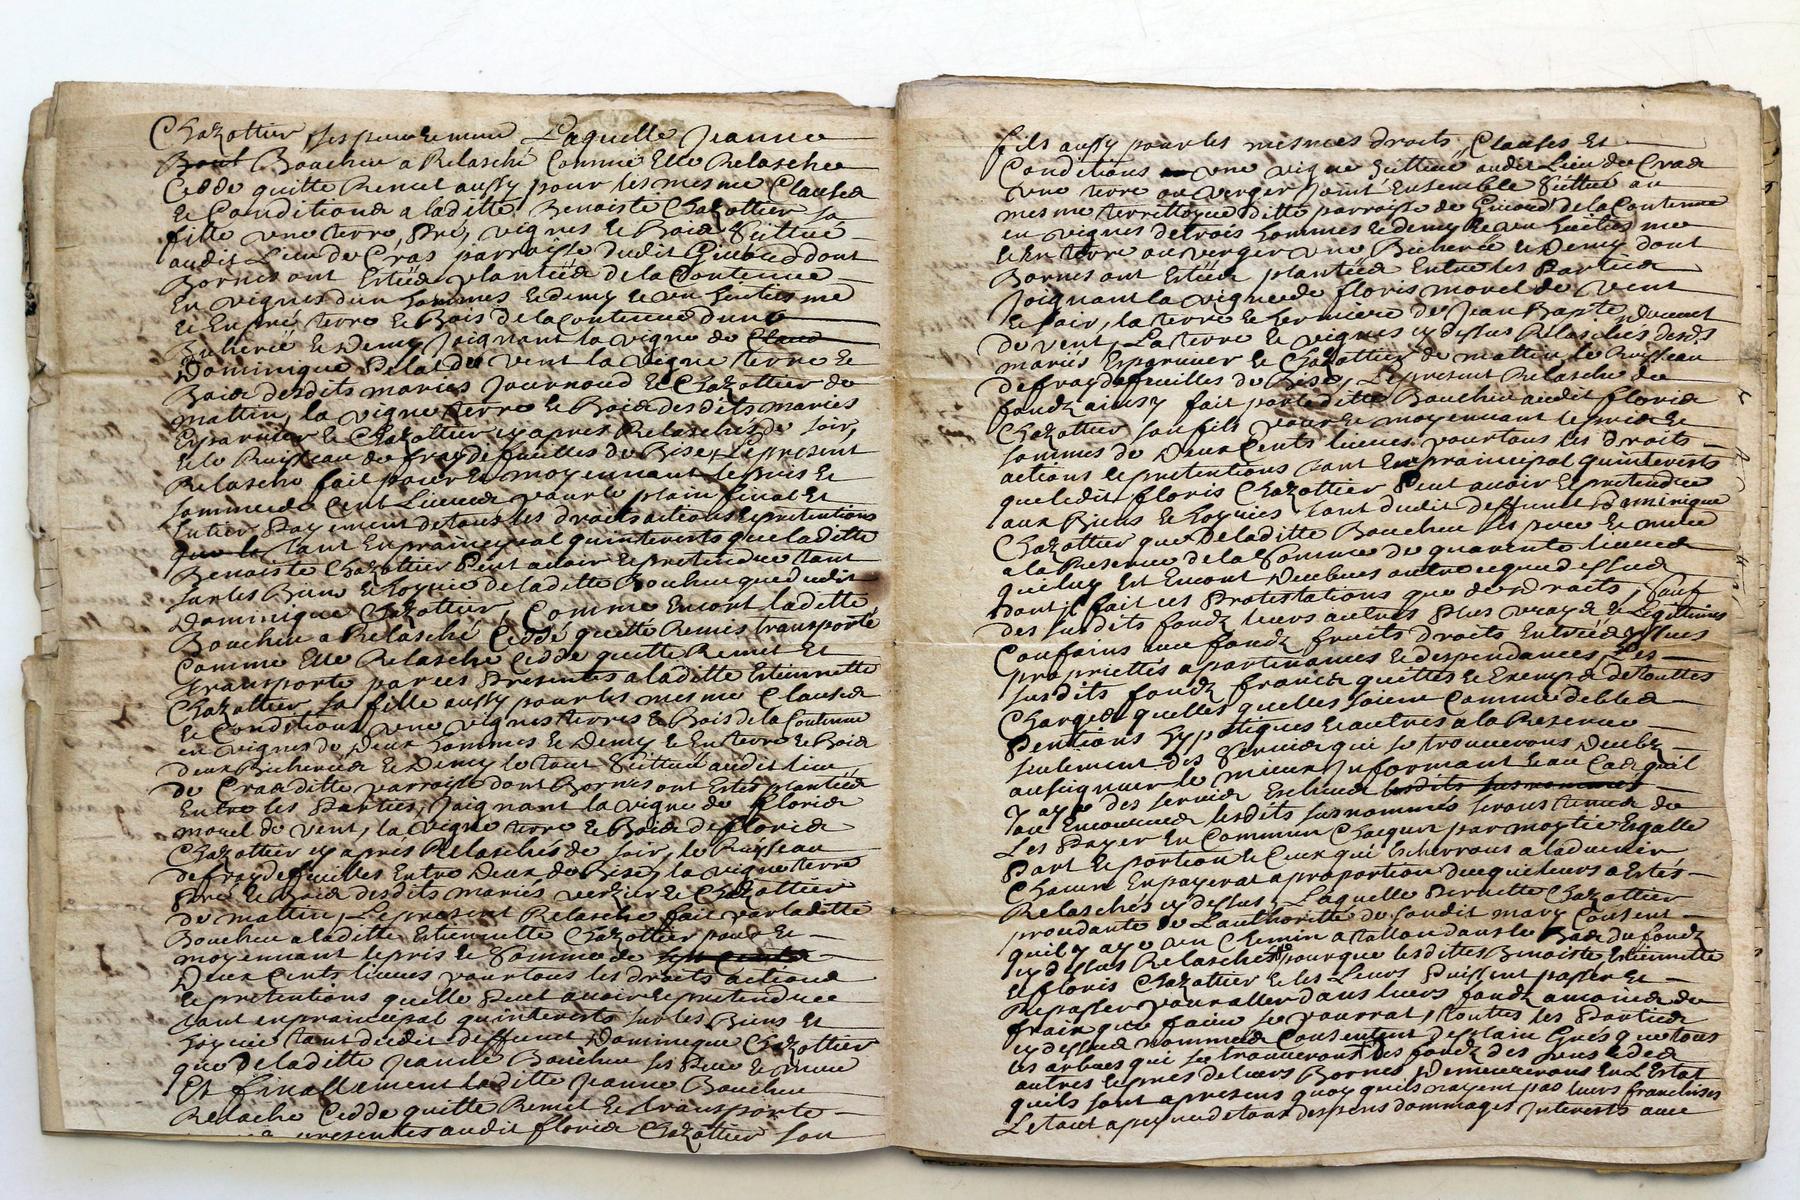 Chazottier ses pere et mere Laquelle Jeanne
Boucheu a Relasché Comme Elle Relasche
Cedde quitte Remet aussy pour les mesme Clauses
et Conditions a laditte Benoiste Chazottier sa
fille une terre, Pré, vignes et Bois Scittué
audit Lieu de Cras parroisse dudit dont
Bornes ont Estées plantées de la Contenue
En vignes d'un hommes et demy et un huitiesme
et En pré terre et Bois de la Contenue d'une
Bicherée et Demy Joignant la vigne de
Dominique de vent la vigne terre et
Bois desdits mariés Journoud et Chazottier de
mattin, la vigne terre et Bois desdits mariés
et Chazottier cy apres Relaschés de soir,
et le Ruisseau de de Bise, Le present
Relasche fait pour et moyennant le pris et
somme de Cent Livres pour le plain final et
Entier Payement de tous les droits actions et pretentions
tant En principal qu'interests que laditte
Benoiste Chazottier Peut avoir et pretendre tant
sur les Biens et hoyrie de laditte Boucheu que dudit
Dominique Chazottier, Comme Encore laditte
Boucheu a Relasché Ceddé quitté Remis transporté
Comme Elle Relasche Cedde quitte Remet Et
transporte par ces Presentes a laditte Estiennette
Chazottier sa fille aussy pour les mesme Clauses
et Conditions une vignes terres et Bois de la Contenue
en vignes de Deux hommes et Demy et En terre et Bois
deux Bicherées et Demy le tout Scittué audit lieu
de Cras ditte parroisse dont Bornes ont Estés plantées
Entre les Parties, Joignant la vigne de floris
morel de vent, la vigne terre et Bois de floris
Chazottier cy apres Relaschés de soir, le Ruisseau
de Entre Deux de Bise, la vigne terre
Pré et Bois desdits mariés et Chazottier
de mattin, Le present Relasche fait par laditte
Boucheu a laditte Estiennette Chazottier pour et
moyennant le pris et Somme de
Deux Cents livres pour tous les droits actions
et pretentions qu'elle Peut avoir et pretendre
tant en principal qu'interests sur les Biens Et
hoyrie tant dudit deffunct Dominique Chazottier
que De laditte Jeanne Boucheu ses Pere et mere
Et finallement laditte Jeanne Boucheu
Relache Cedde quitte Remet et transporte
presentes audit floris Chazottier son
fils aussy pour les mesmes droits, Clauses Et
Conditions une vigne Scittuée audit Lieu de Cras
une terre ou verger Joint Ensemble Scittué au
mesme territoyre ditte parroisse de de la Contenue
en vignes de trois hommes et demy et un huitiesme
et En terre ou verger une Bicherée et Demy dont
Bornes ont Estées plantées Entre les Parties
Joignant la vigne de floris morel de vent
et soir, la terre et de Jean Bapte
de vent, La terre et vignes cy dessus Relaschés desds
mariés et Chazottier de mattin le Ruisseau
de de Bise, Le present Relasche de
fondz ainsy fait par laditte Boucheu audit floris
Chazottier son fils pour et moyennant le pris et
sommes de Deux Cents livres pour tous les droits
actions et pretentions tant En principal qu'interests
que ledit floris Chazottier Peut avoir et pretendre
aux Biens et hoyries tant dudit deffunct Dominique
Chazottier que De laditte Boucheu ses pere et mere
a la Reserve de la Somme de quarente livres
qui luy est Encore Deubues outre ce que dessus
dont il fait ses Protestations que de droits, Sauf
des susdits fondz leurs autres Plus vrays et Legitimes
Confains avec fondz fruits droits Entrées yssues
proprietés apartenances et despendances, Les
susdits fondz francs quittes et Exempts de touttes
Charges quelles quelles soient Comme debtes
Pentions hypotiques et autres a la Reserve
seulement des Servis qui se trouverons Deubz
au seigneur le mieux Informant et au Cas qu'il
y aye des servis Escheus
ou lesdits surnommés serons tenus de
Les Payer En Commun Chacqun par moytié Egalle
Part et portion et Ceux qui Escherrons a ladvenir
Chacun En payerat a proportion de ce qui leurs a Estés
Relaschés cy dessus, Laquelle Pernette Chazottier
procedante de L'authorité de sondit mary Consent
qu'il y aye un Chemin a tallon dans le Bas du fondz
cy dessus Relaschés pour que lesdittes Benoiste Estiennette
et floris Chazottier et les Leurs Puissent passer et
Repasser pour aller dans leurs fondz a moins de
frais que faire se pourrat, touttes les Parties
cy dessus nommés Consentent de plain Grés que tous
les arbres qui se trouverons des fondz des uns et des
autres et pres de leurs Bornes Demeurerons En L'Estat
qu'ils sont a presens quoy qu'ils n'ayent pas leurs franchises
Le tout a peyne de tous despens dommages Interests avec